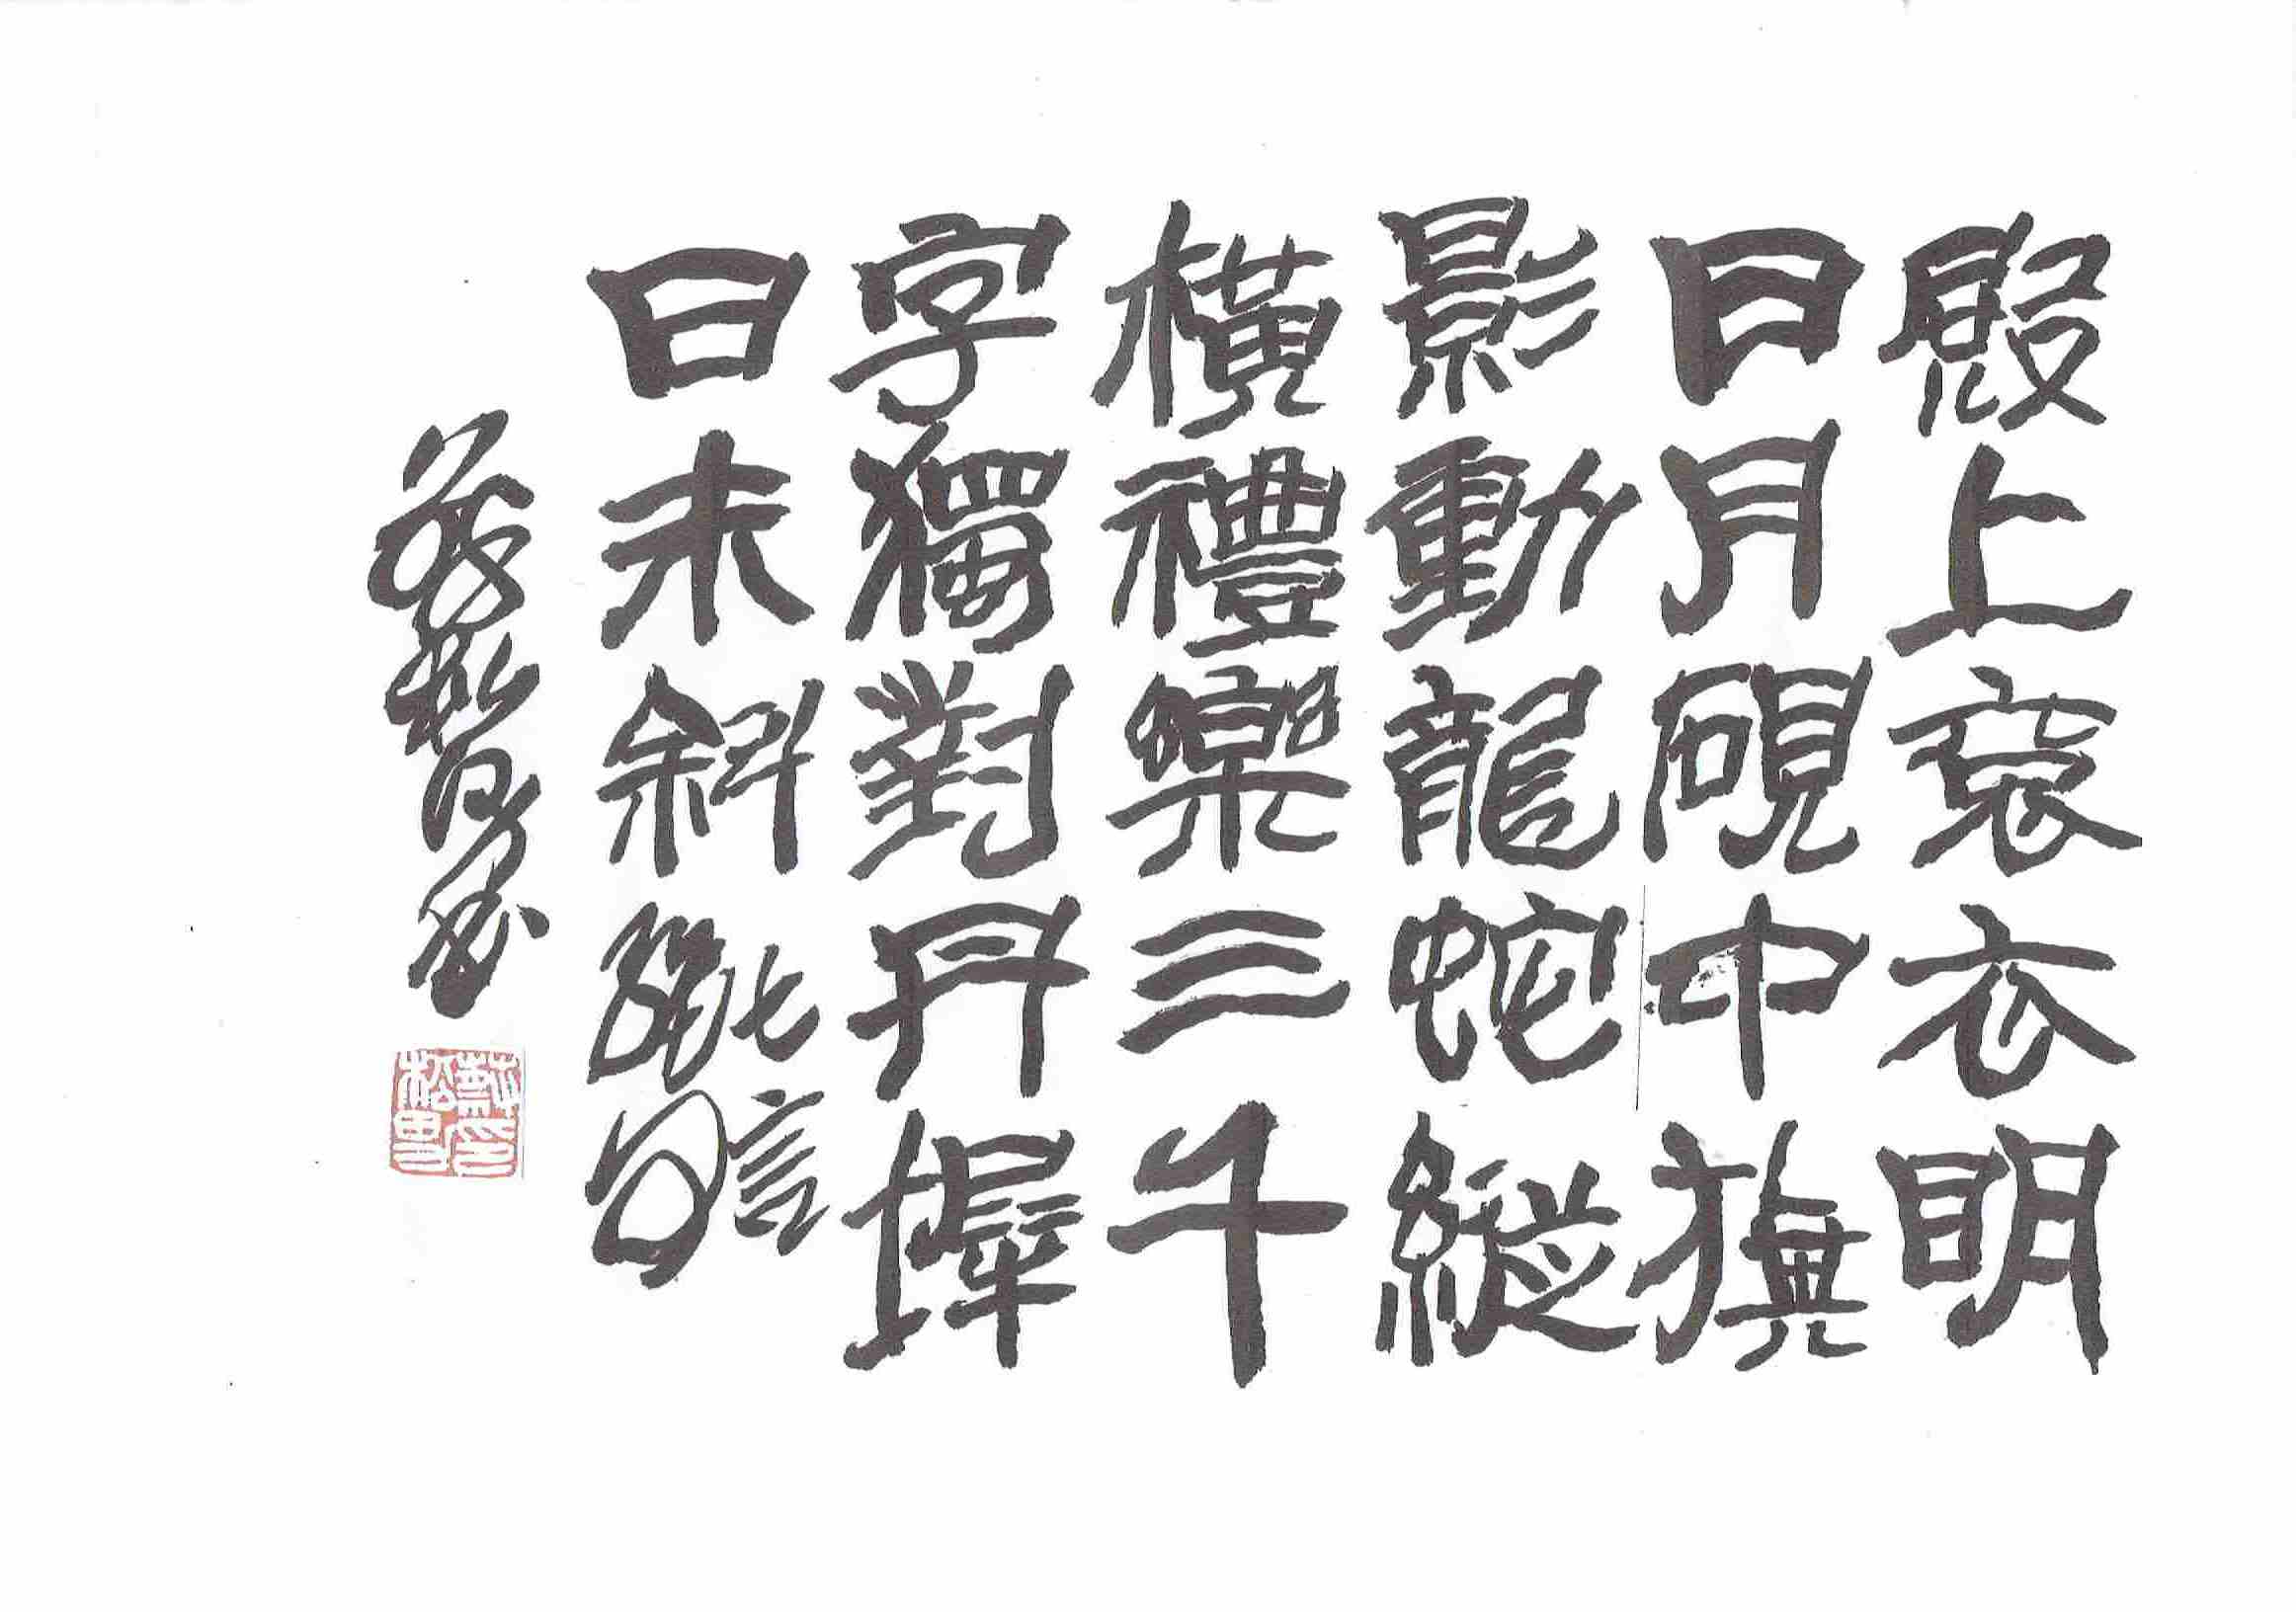 殿上袞衣明
日月硯中旗
影動龍蛇縱
橫禮樂三千
字獨對丹墀
日未斜
松男